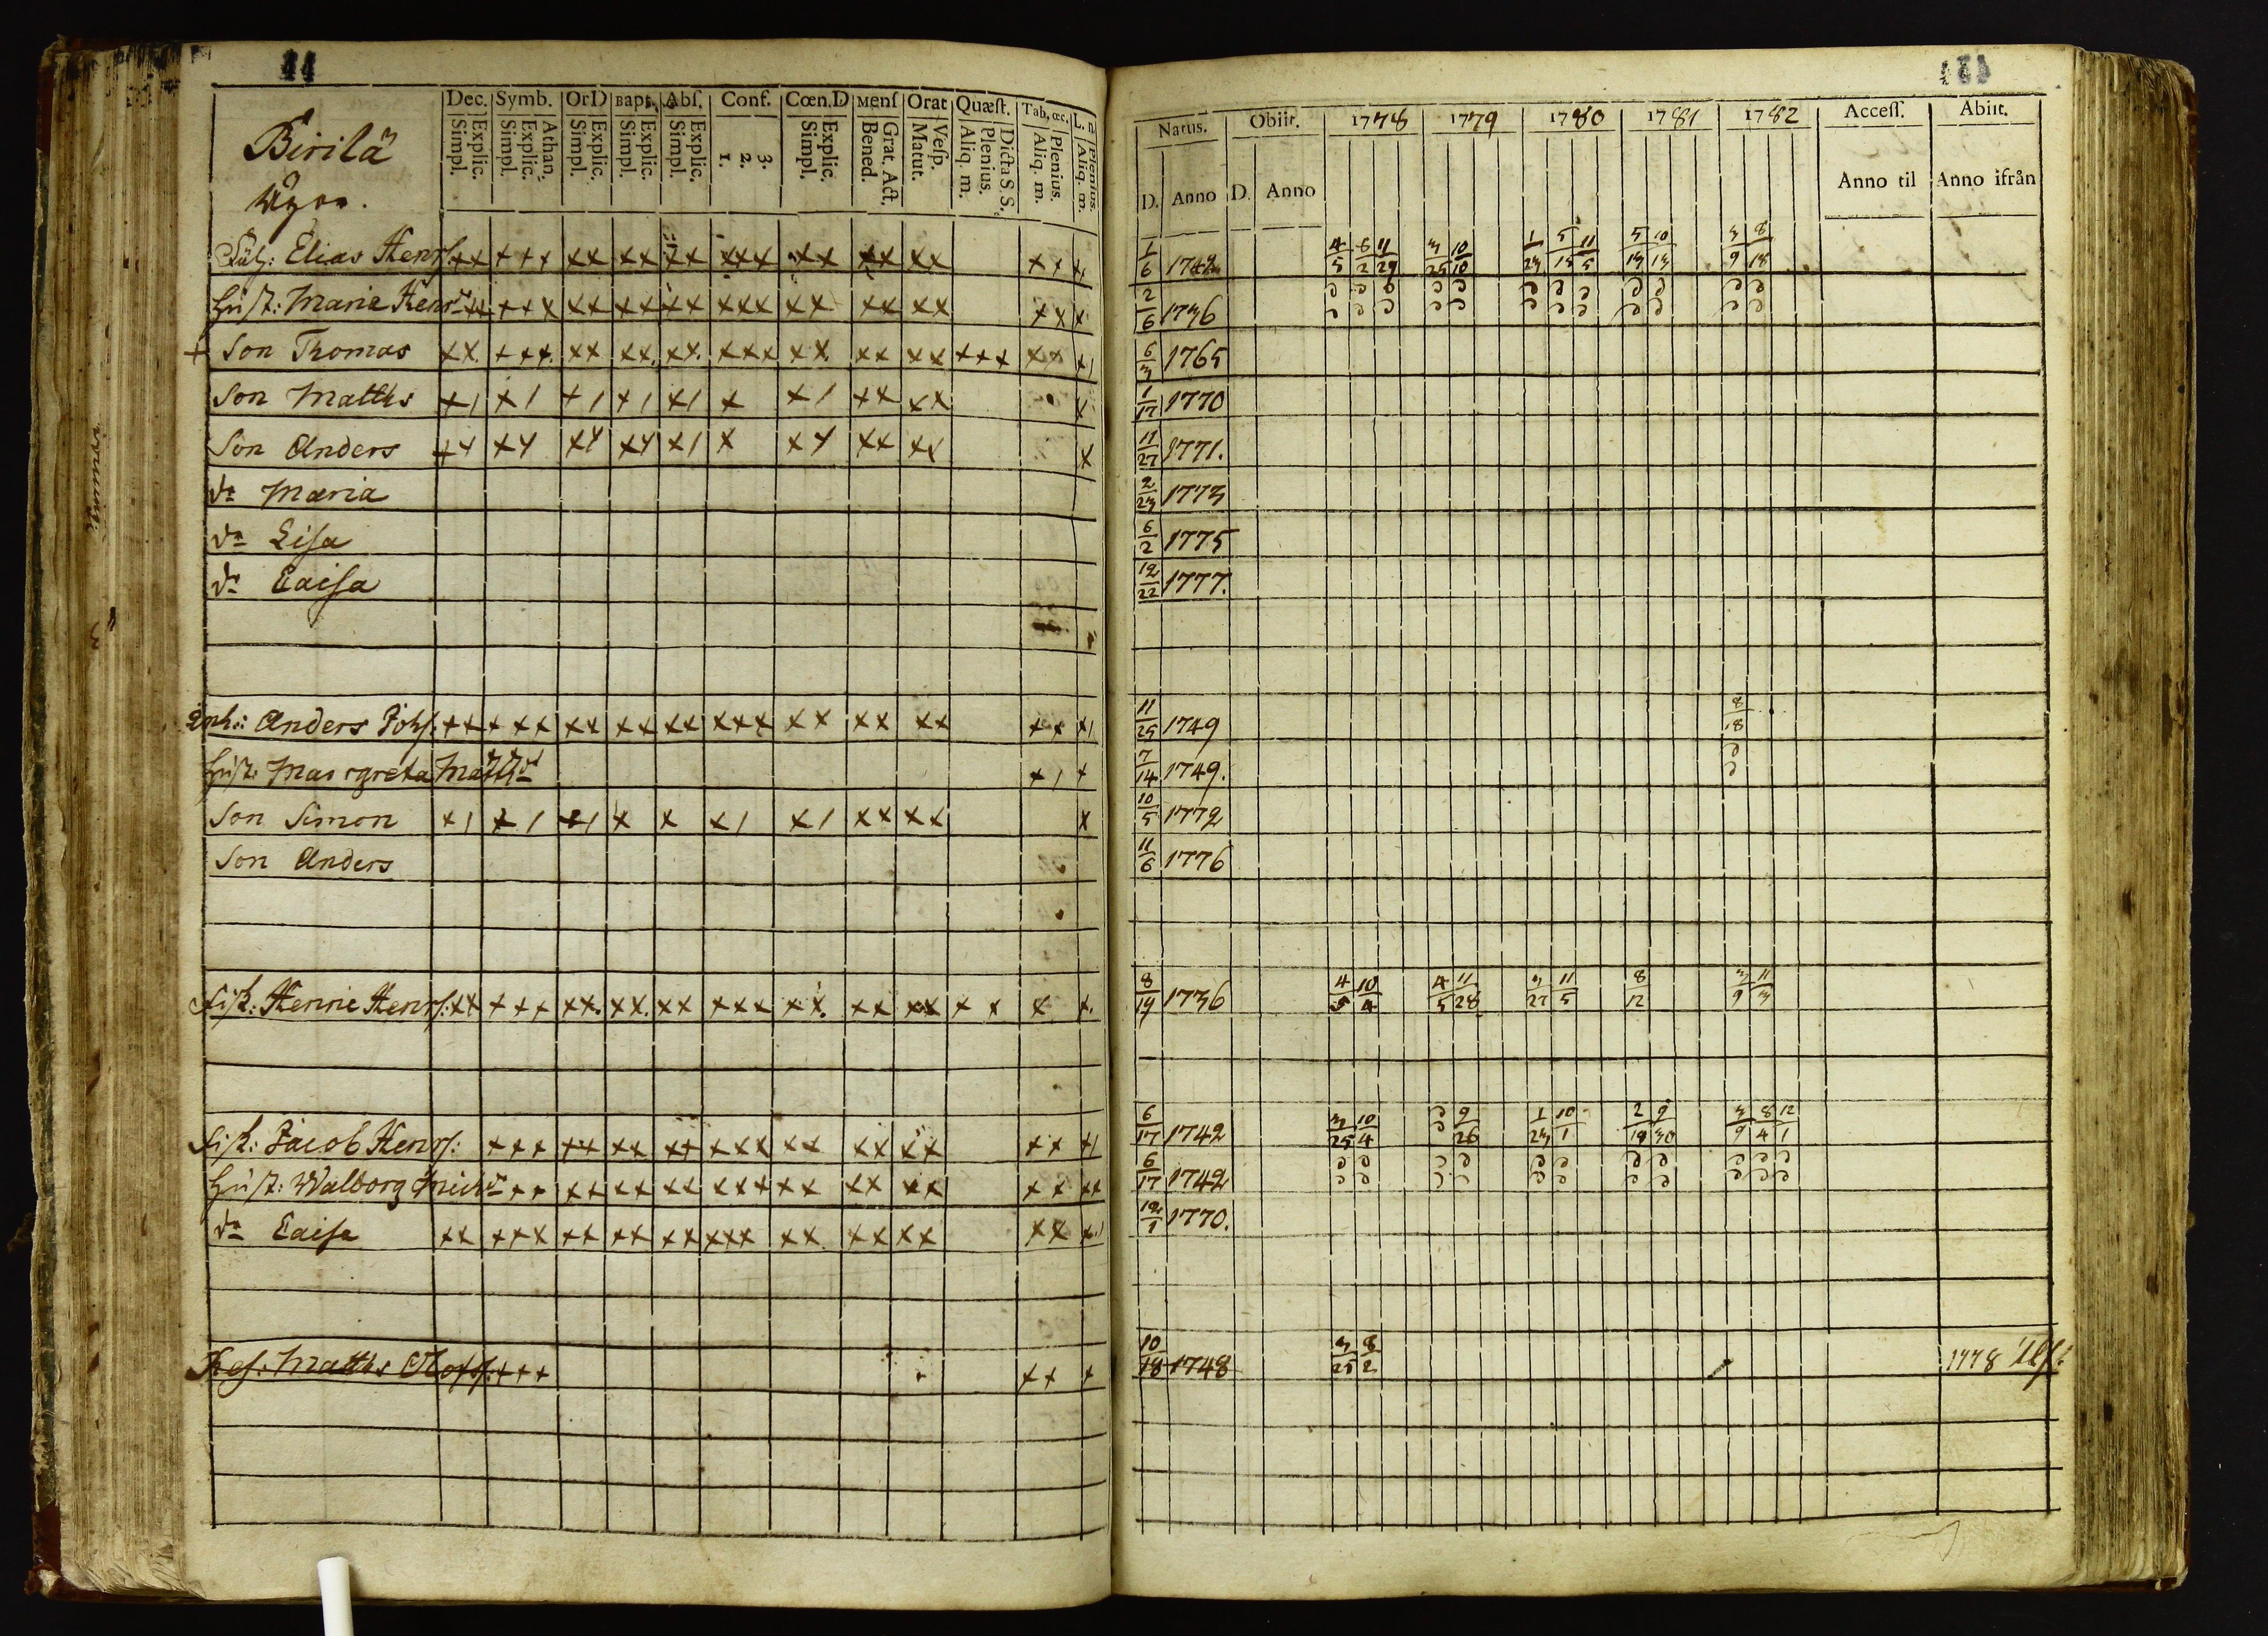 44
Dec. Symb. OrD Bapt. Abſ. Conf. Cœn.D Menſ Orat Quæſt. Tab. œc. L. n
Simpl. Explic. Simpl. Explic. Athan. Simpl. Explic. Simpl. Explic. Simpl. Explic. 1. 2. 3. Simpl. Explic. Bened. Grat. Act. Matut. Veſp. Aliq. m. Plenius. Dicta S. S. Aliq. m. Plenius. Aliq. m. Plenius.
Birilä
Elias Henrſ: xx xxx xx xx xx xxx xx xx xx xx x
Huſt: Maria Henrsdr xx xxx xx xx xx xxx xx xx xx xx x
+ Son Thomas xx xxx xx xx xx xxx xx xx xx xxx xx x1
Son Matths x1 x1 x1 x1 x1 x x1 xx xx x
Son Anders xy xy xy xy x1 x xy xx xx x
dr Maria
dr Liſa
dr Caiſa
Inh: Anders Johſ: xx xxx xx xx xx xxx xx xx xx xx x1
Huſt: Margreta Matthsdr x1 x
Son Simon x1 x1 x1 x x x1 x1 xx xx x
Son Anders
Henric Henrſ: xx xxx xx xx xx xxx xx xx xx x x x x
Jacob Henrſ: xxx xx xx xx xxx xx xx xx xx x1
Huſt: Walborg xx xx xx xxx xx xx xx xx xx
dr Caiſa xx xxx xx xx xx xxx xx xx xx xx x1
Matths Oloffſ: xxx xx x
Natus. Obiit. 1778 1779 1780 1781 1782 Acceſſ. Abiit.
D. Anno D. Anno Anno til Anno ifrån
1/6 1742 4/5 6/2 11/29 3/25 10/10 1/23 5/15 11/5 5/13 10/13 3/9 8/18
2/6 1736
6/3 1765
1/17 1770
11/27 1771.
2/23 1773
6/2 1775
12/22 1777.
11/25 1749 8/18
7/14 1749.
10/5 1772
11/6 1776
8/19 1736 4/5 10/4 4/5 11/28 3/27 11/5 8/12 3/9 11/3
6/17 1742 3/25 10/4 9/26 1/23 10/1 2/19 9/30 3/9 8/4 12/1
6/17 1742
12/1 1770.
10/18 1748 3/25 8/2 1778